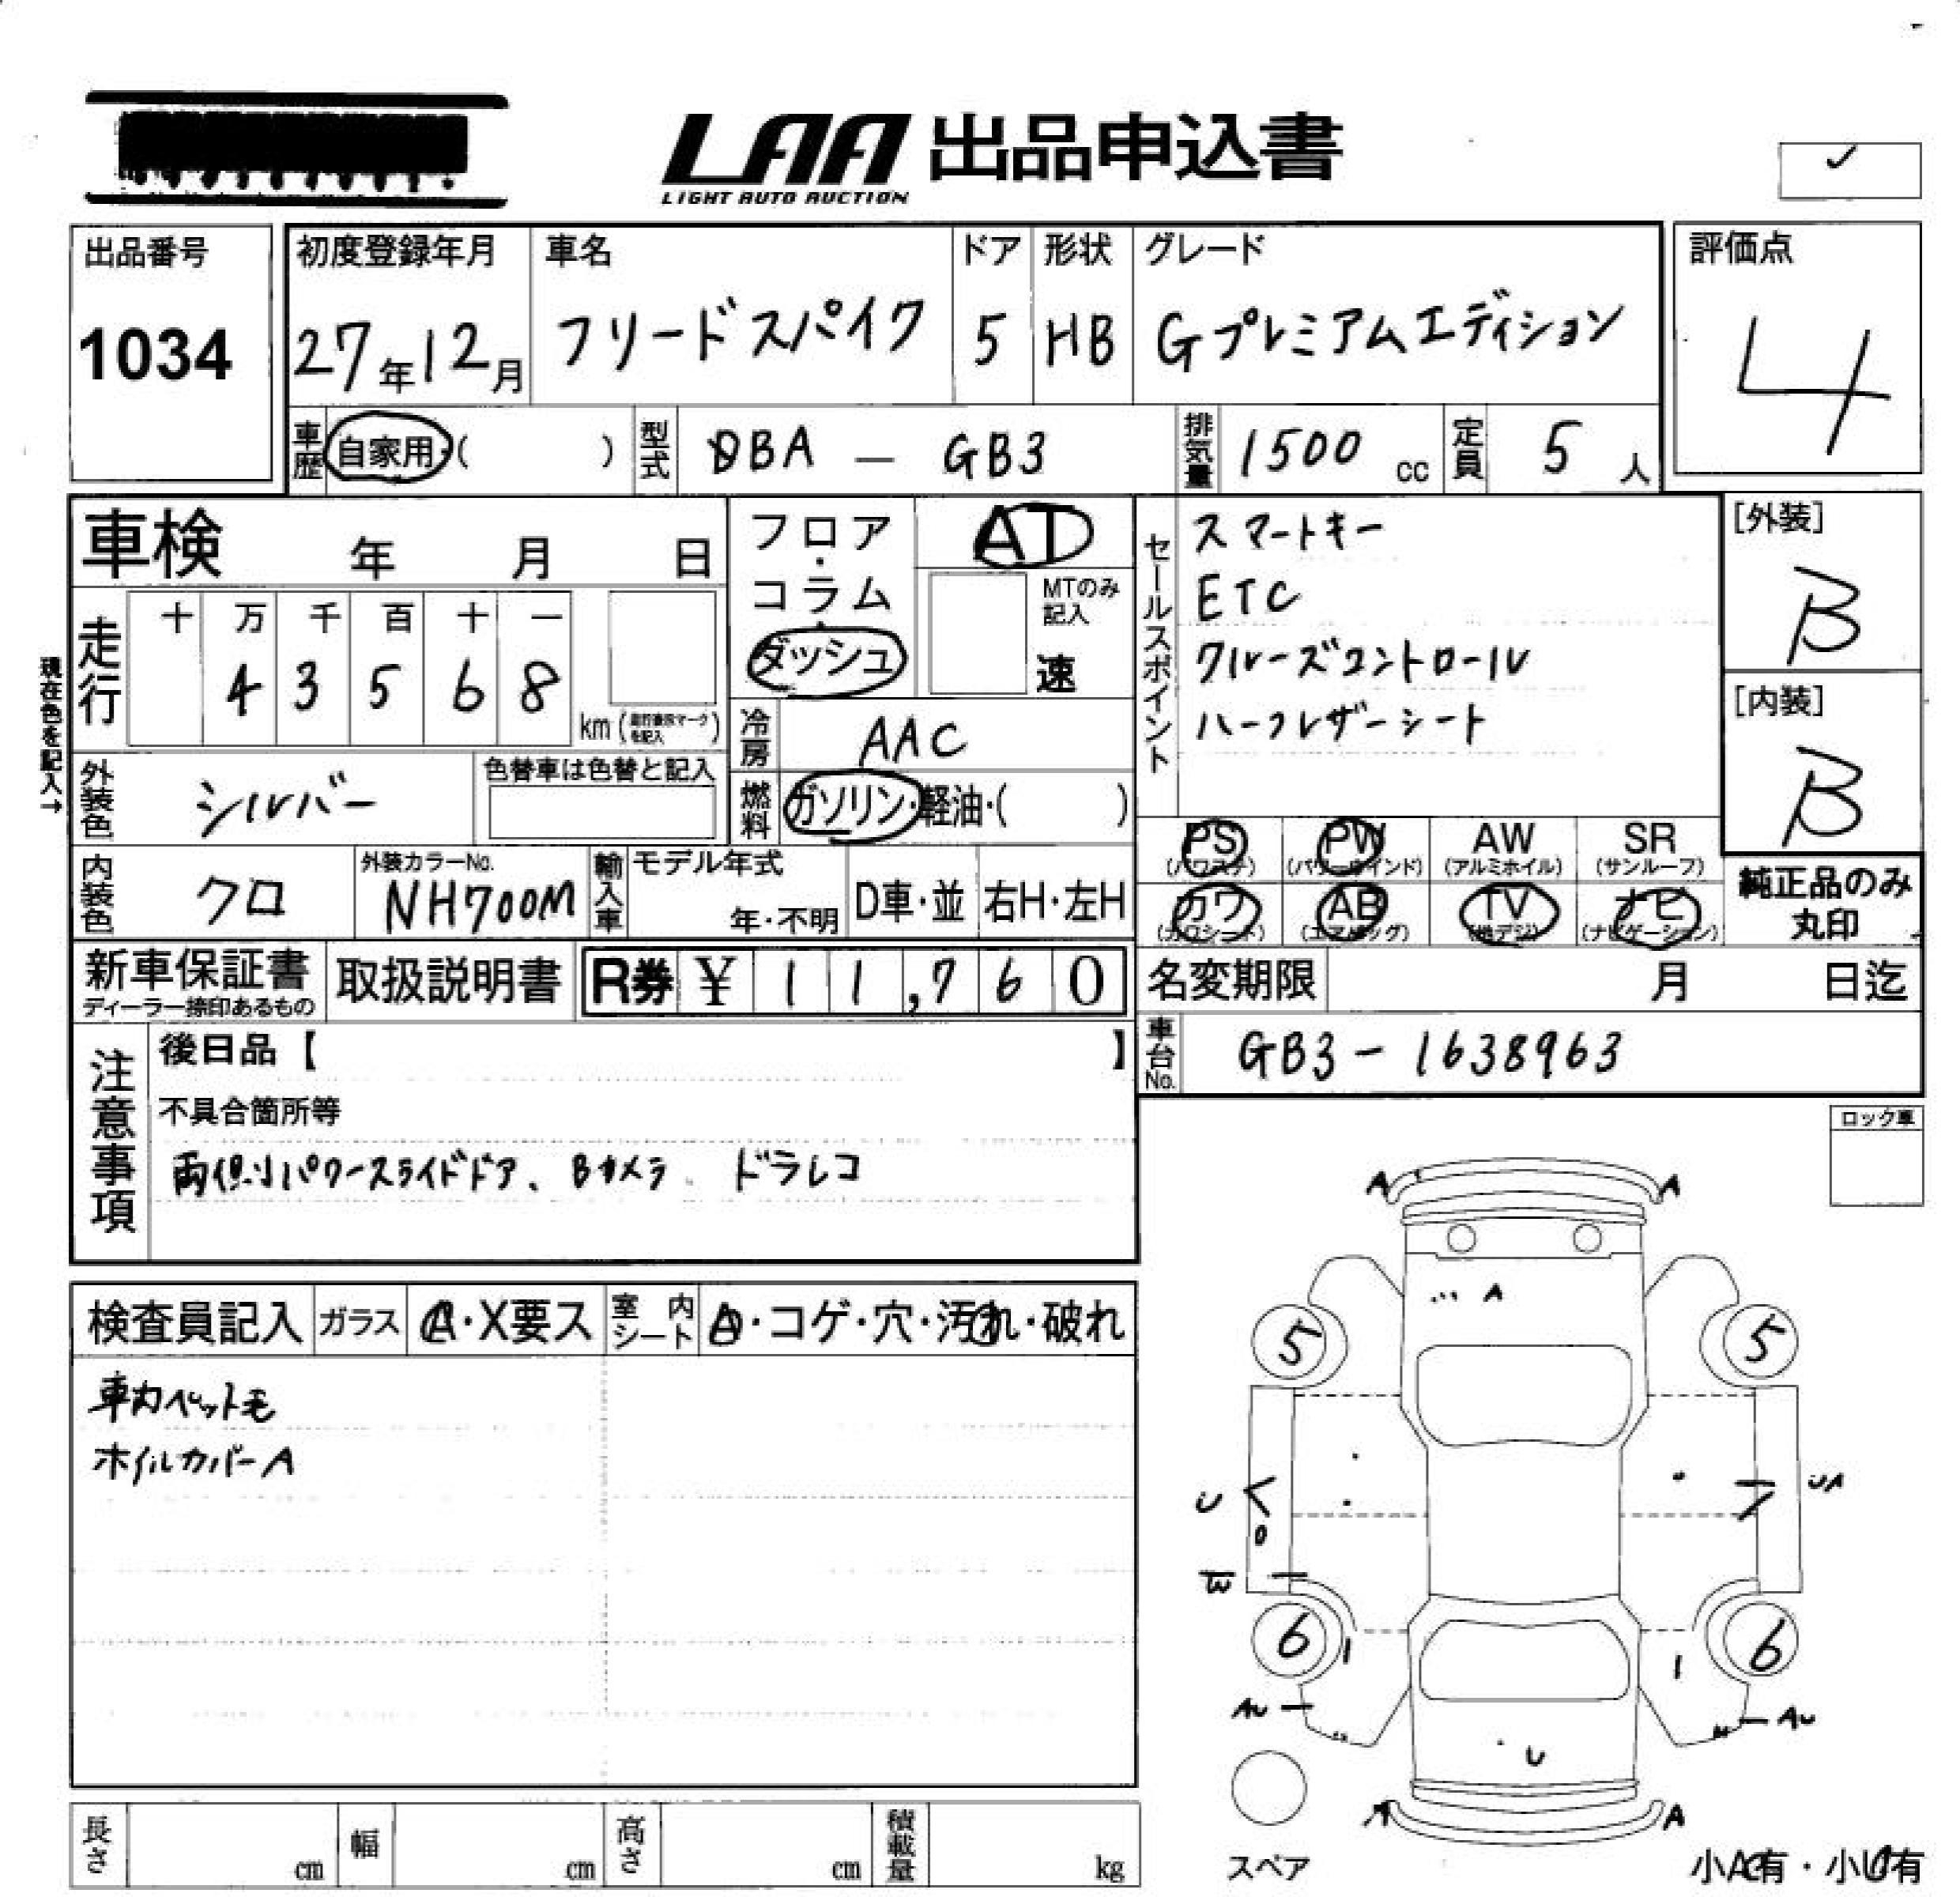 LAA 出品申込書
LIGHT AUTO AUCTION
✓
出品番号
1034
初度登録年月
27年12月
車名
フリードスパイク
ドア
5
形状
HB
グレード
Gプレミアムエディション
評価点
4
車歴
自家用・( )
型式
DBA － GB3
排気量
1500 cc
定員
5 人
車検 年 月 日
フロア・コラム・ダッシュ
AT
MTのみ記入
速
セールスポイント
スマートキー
ETC
クルーズコントロール
ハーフレザーシート
[外装]
B
[内装]
B
現在色を記入→
走行
十 万 千 百 十 一
4 3 5 6 8
km
冷房
AAC
外装色
シルバー
色替車は色替と記入
燃料
ガソリン・軽油・( )
PS (パワステ)
PW (パワーウインド)
AW (アルミホイル)
SR (サンルーフ)
カワ (カワシート)
AB (エアバッグ)
TV (地デジ)
ナビ (ナビゲーション)
純正品のみ
丸印
内装色
クロ
外装カラーNo.
NH700M
輸入車
モデル年式
年・不明
D車・並
右H・左H
新車保証書
ディーラー捺印あるもの
取扱説明書
R券 ¥ 11,760
名変期限 月 日迄
車台No.
GB3－1638963
注意事項
後日品【 】
不具合箇所等
両側パワースライドドア、Bカメラ、ドラレコ
ロック車
検査員記入
ガラス
A・X要ス
室内シート
A・コゲ・穴・汚れ・破れ
車内ペット毛
ホイルカバーA
A A
A
5 5
U UA
W
6 6
AU AU
U
A A
スペア
小A有・小U有
長さ cm
幅 cm
高さ cm
積載量 kg